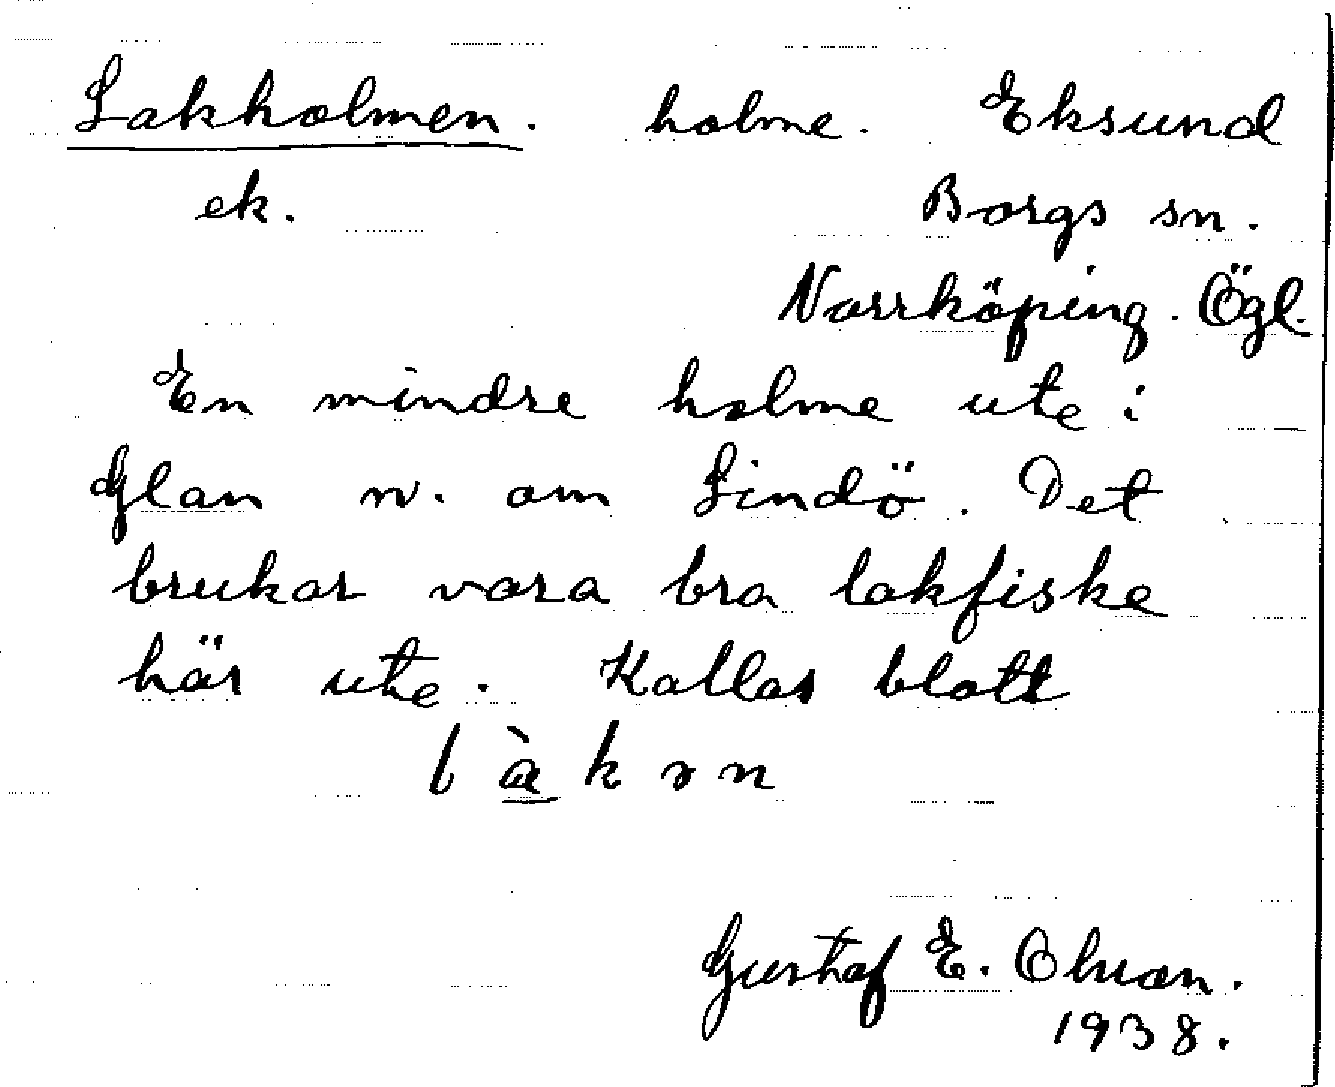 Lakholmen. holme. Eksund
ek. Borgs sn.
Norrköping. Ögl.
En mindre holme ute i
Glan n. om Lindö. Det
brukar vara bra lakfiske
här ute. Kallas blott
l à k ɘ n
Gustaf E. Olsson.
1938.